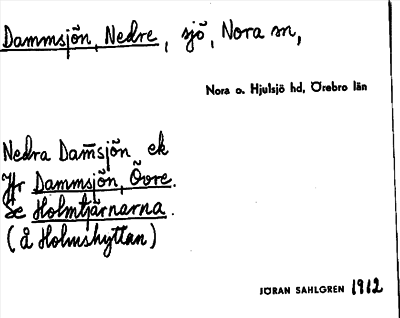 Dammsjön, Nedre, sjö, Nora sn,
Nora o. Hjulsjö hd, Örebro län
Nedra Dam̅sjön ek
Jfr Dammsjön, Övre.
Se Holmtjärnarna.
(å Holmshyttan)
JÖRAN SAHLGREN 1912